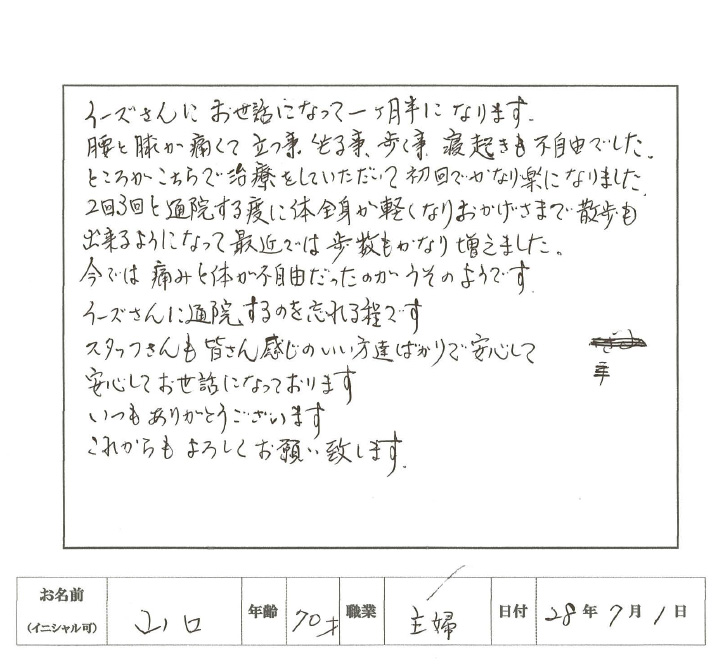 イーズさんに お世話になって一ヶ月半になります.
腰と膝が痛くて立つ事、坐る事、歩く事 寝起きも不自由でした。
ところがこちらで治療をしていただいて初回でかなり楽になりました.
2回3回と通院する度に体全身が軽くなりおかげさまで散歩も
出来るようになって最近では歩数もかなり増えました。
今では痛みと体が不自由だったのがうそのようです.
イーズさんに通院するのを忘れる程です
スタッフさんも皆さん感じのいい方達ばかりで安心して
安心してお世話になっております
いつもありがとうございます
これからもよろしくお願い致します.
お名前
(イニシャル可)
山口
年齢
70才
職業
主婦
日付
28年7月1日